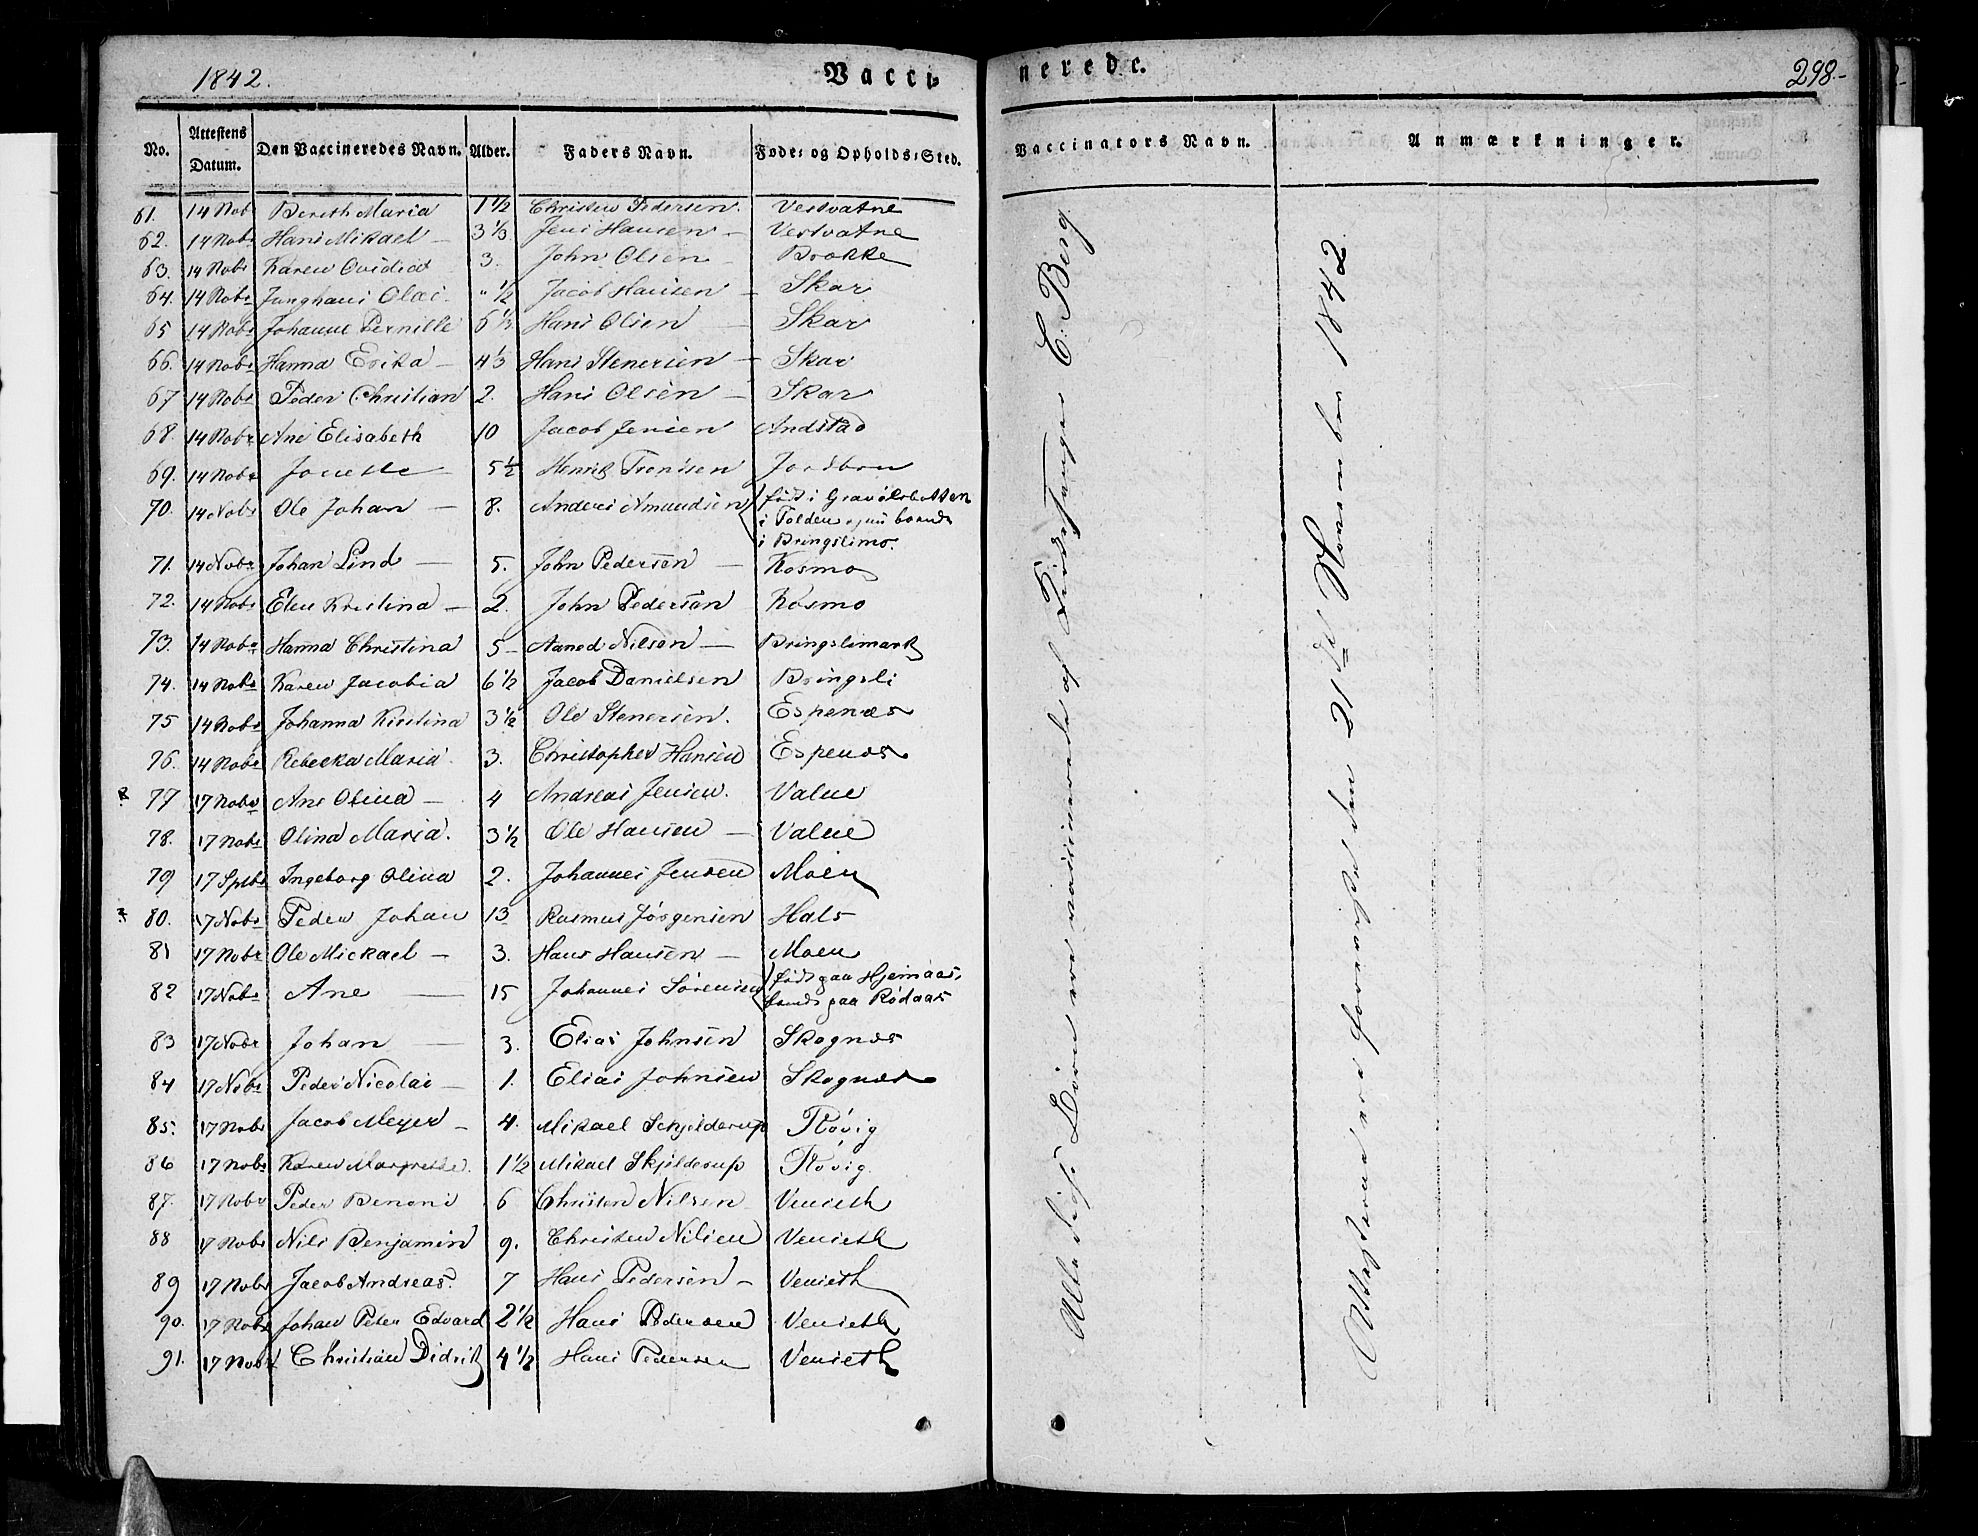 1842.
Vacci-
nerede.
298.-
No. Attestens Datum. Den Vaccineredes Navn. Alder. Faders Navn. Føde- og Opholds-Sted.
Vaccinators Navn. Anmærkninger.
61. 14 Nob Bereth Maria 1½ Christen Pedersen. Vestvatne
62. 14 Nobr Hans Mikael — 3⅓ Jens Hansen — Vestvatne
63. 14 Nobr Karen Ovidia 3. John Olsen — Brokke
64. 14 Nobr Junghans Olai " ½ Jacob Hansen — Skar
65 14 Nobr Johanne Pernille 6½ Hans Olsen — Skar
66. 14 Nobr Hanna Erika — 4⅓ Hans Stenersen — Skar
67 14 Nobr Peder Christian 2. Hans Olsen — Skar
68. 14 Nobr Ane Elisabeth 10 Jacob Jensen Andstad
69. 14 Nobr Jonette — 5½ Henrik Trondsen Jordbru
70. 14 Nobr Ole Johan — 8. Anders Amundsen född i Gravolsbotten
i Folden og nu boende
i Bringslimo.
71. 14 Nobr Johan Lind — 5. John Pedersen — Kosmo
72. 14 Nobr Elen Kristina — 2. John Pedersen Kosmo
73. 14 Nobr Hanna Christina 5 — Aanod Nilsen — Bringslimark
74. 14 Nobr Karen Jacobia 6½ Jacob Danielsen Bringsli
75 14 Nobr Johanna Kirstina 3½ Ole Stenersen. Espenæs
76. 14 Nobr Rebecka Maria. 3. Christopher Hansen Espenæs
77 17 Nobr Ane Olina — 4 Andreas Jensen. Valne
78. 17 Nobr Olina Maria. 3½ Ole Hansen — Valne
79 17 Sptbr Ingeborg Olina 2. Johannes Jensen Moen
80. 17 Nobr Peder Johan 13 Rasmus Jörgensen Hals
81 17 Nobr Ole Mickael — 3. Hans Hansen — Moen
82 17 Nobr Ane — 15 Johannes Sörensen födt paa Hjemaas,
boende paa Rödaas
83 17 Nobr Johan — 3. Elias Johnsen Skognæs
84 17 Nobr Peder Nicolai — 1. Elias Johnsen Skognæs
85. 17 Nobr Jacob Meyer — 4. Mikael Schjelderup Rövig
86 17 Nobr Karen Margrethe. 1½ Mikael Skjelderup Rövig.
87. 17 Nobr Peder Benoni 6 Christen Nilsen Venseth
88 17 Nobr Nils Benjamin 9. Christen Nilsen Venseth
89 17 Nobr Jacob Andreas. 7 Hans Pedersen — Venseth
90. 17 Nobr Johan Peter Edvard 2½ Hans Pedersen Venseth
91. 17 Nobr Christian Didrik 4½ Hans Pedersen Venseth
Alle disse Börn ere vaccinerede af C. Berg
Attesterne ere forevist den 21de November 1842